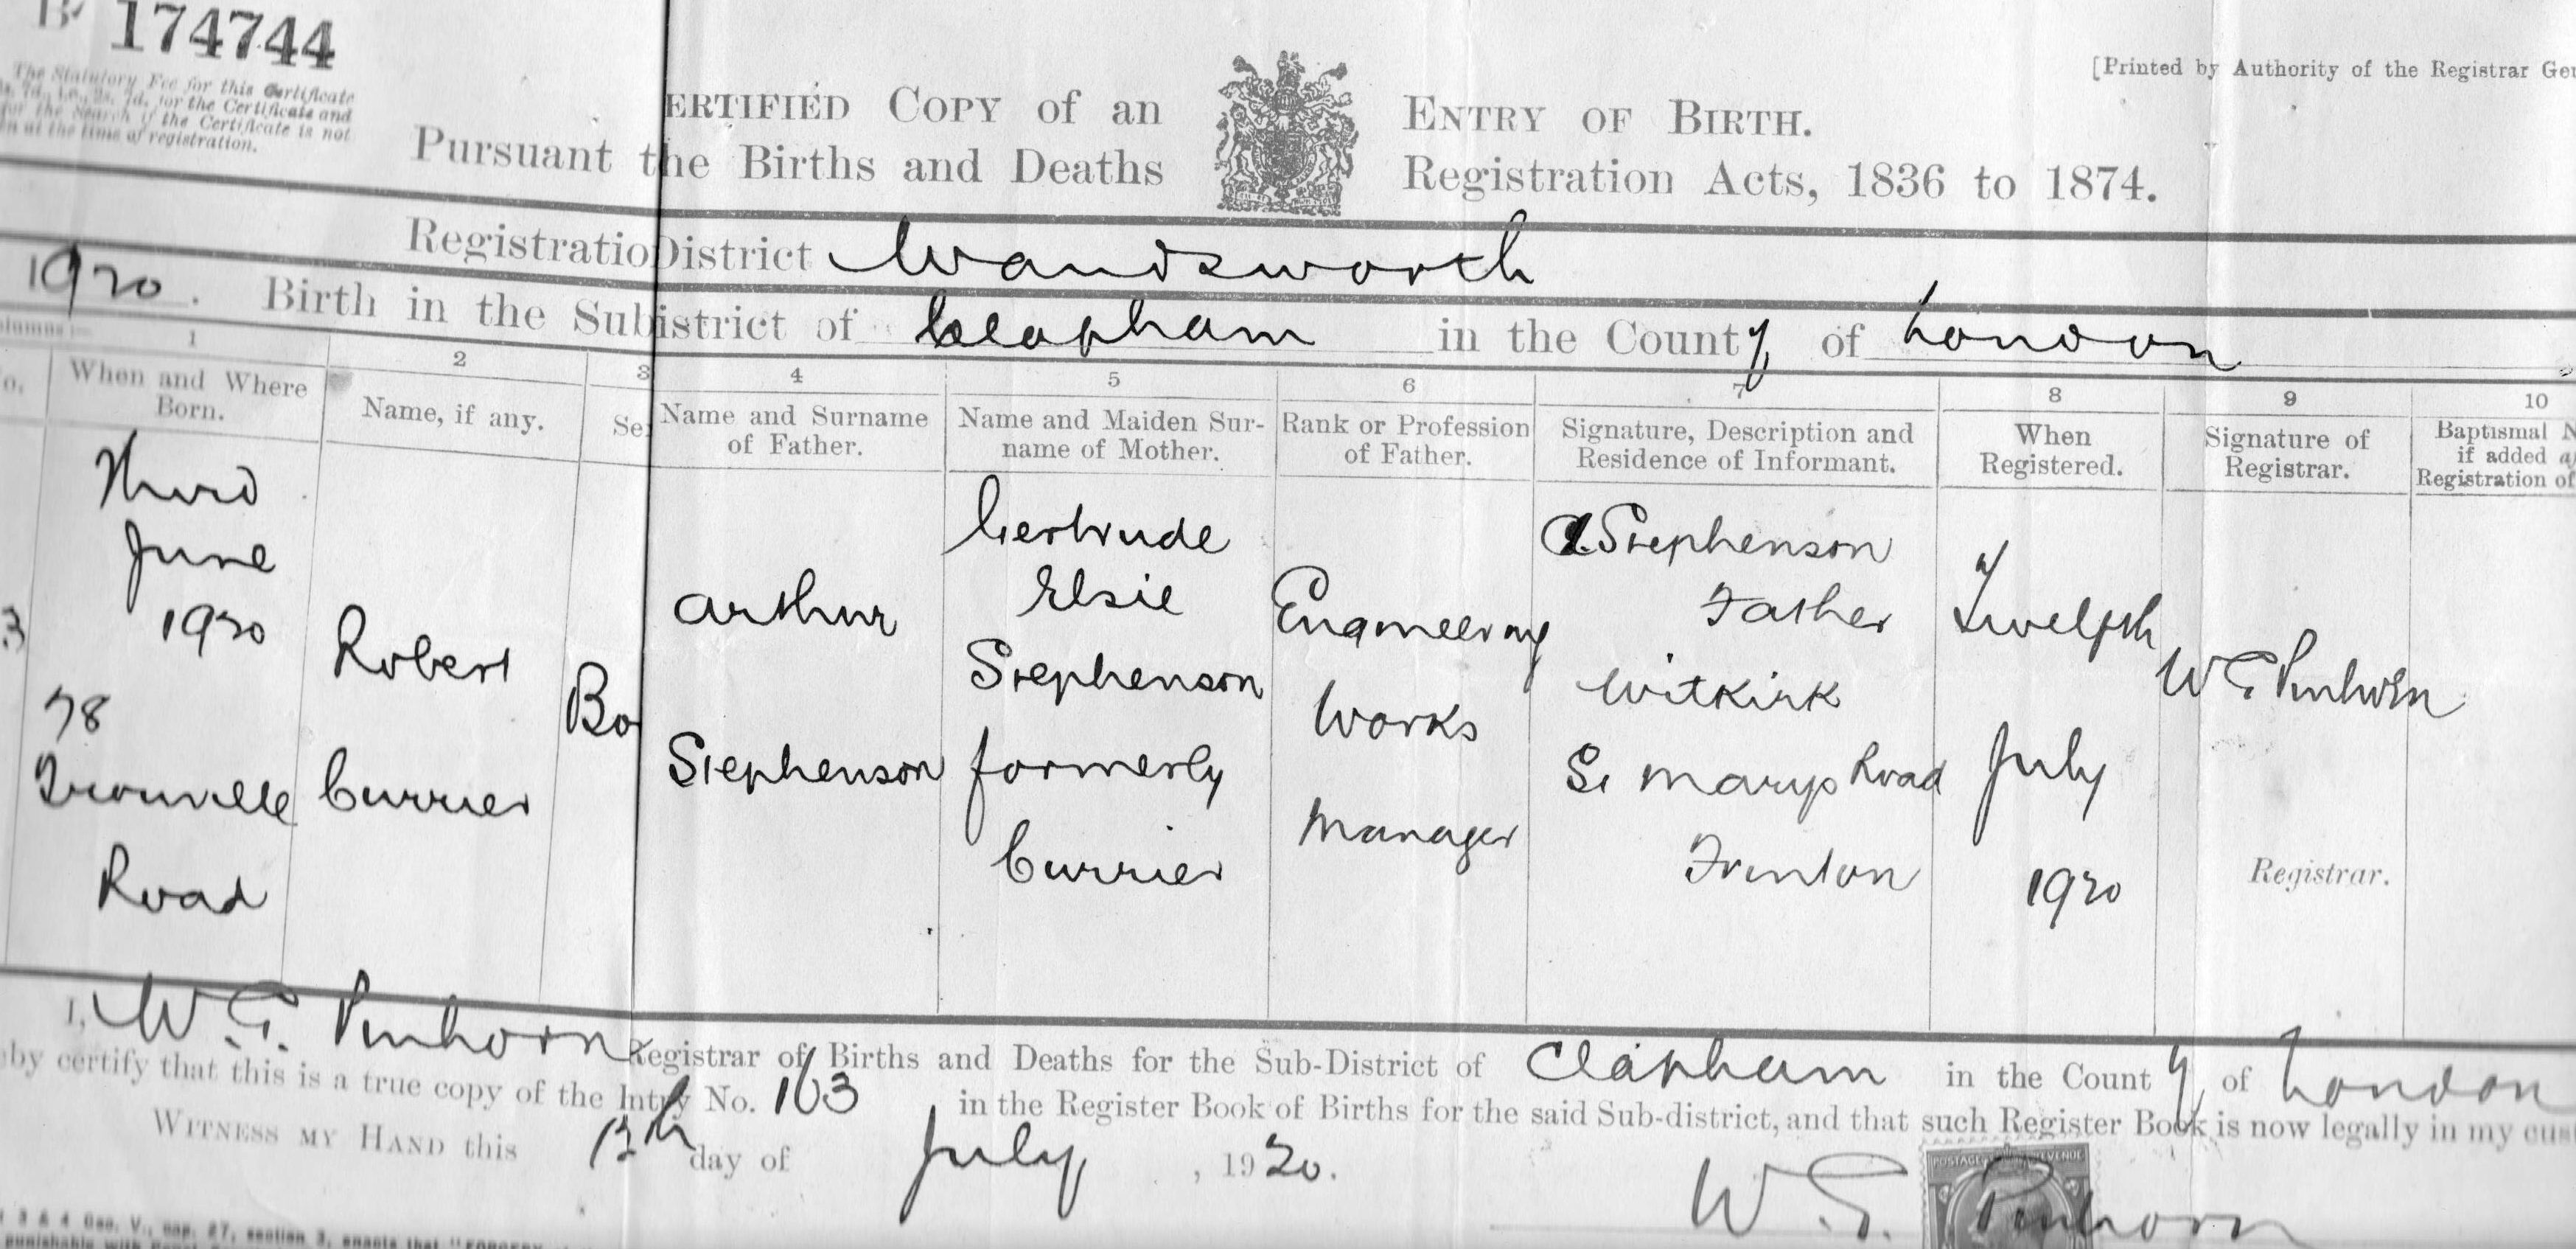 174744
The Statutory Fee for this Certificate
for the Certificate and
for the Search if the Certificate is not
at the time of registration.
[Printed by Authority of the Registrar Ge
ERTIFIED COPY of an ENTRY OF BIRTH.
Pursuant the Births and Deaths Registration Acts, 1836 to 1874.
Registratio District Wandsworth
1920. Birth in the Sub istrict of Clapham in the County of London
1 2 3 4 5 6 7 8 9 10
When and Where Born.
Name, if any.
Se
Name and Surname of Father.
Name and Maiden Sur-
name of Mother.
Rank or Profession
of Father.
Signature, Description and
Residence of Informant.
When
Registered.
Signature of
Registrar.
Baptismal N
if added a
Registration of
3
Third
June
1920
78
Trouville
Road
Robert
Currier
Bo
Arthur
Stephenson
Gertrude
Elsie
Stephenson
formerly
Currier
Engineering
Works
Manager
A. Stephenson
Father
Witkirk
St Marys Road
Frinton
Twelfth
July
1920
W E Penhorn
Registrar.
I, W. E. Penhorn Registrar of Births and Deaths for the Sub-District of Clapham in the County of London
eby certify that this is a true copy of the Entry No. 163 in the Register Book of Births for the said Sub-district, and that such Register Book is now legally in my cus
WITNESS MY HAND this 12th day of July, 1920.
POSTAGE REVENUE
W. E. Penhorn
3 & 4 Geo. V., cap. 27, section 3, enacts that "FORGERY